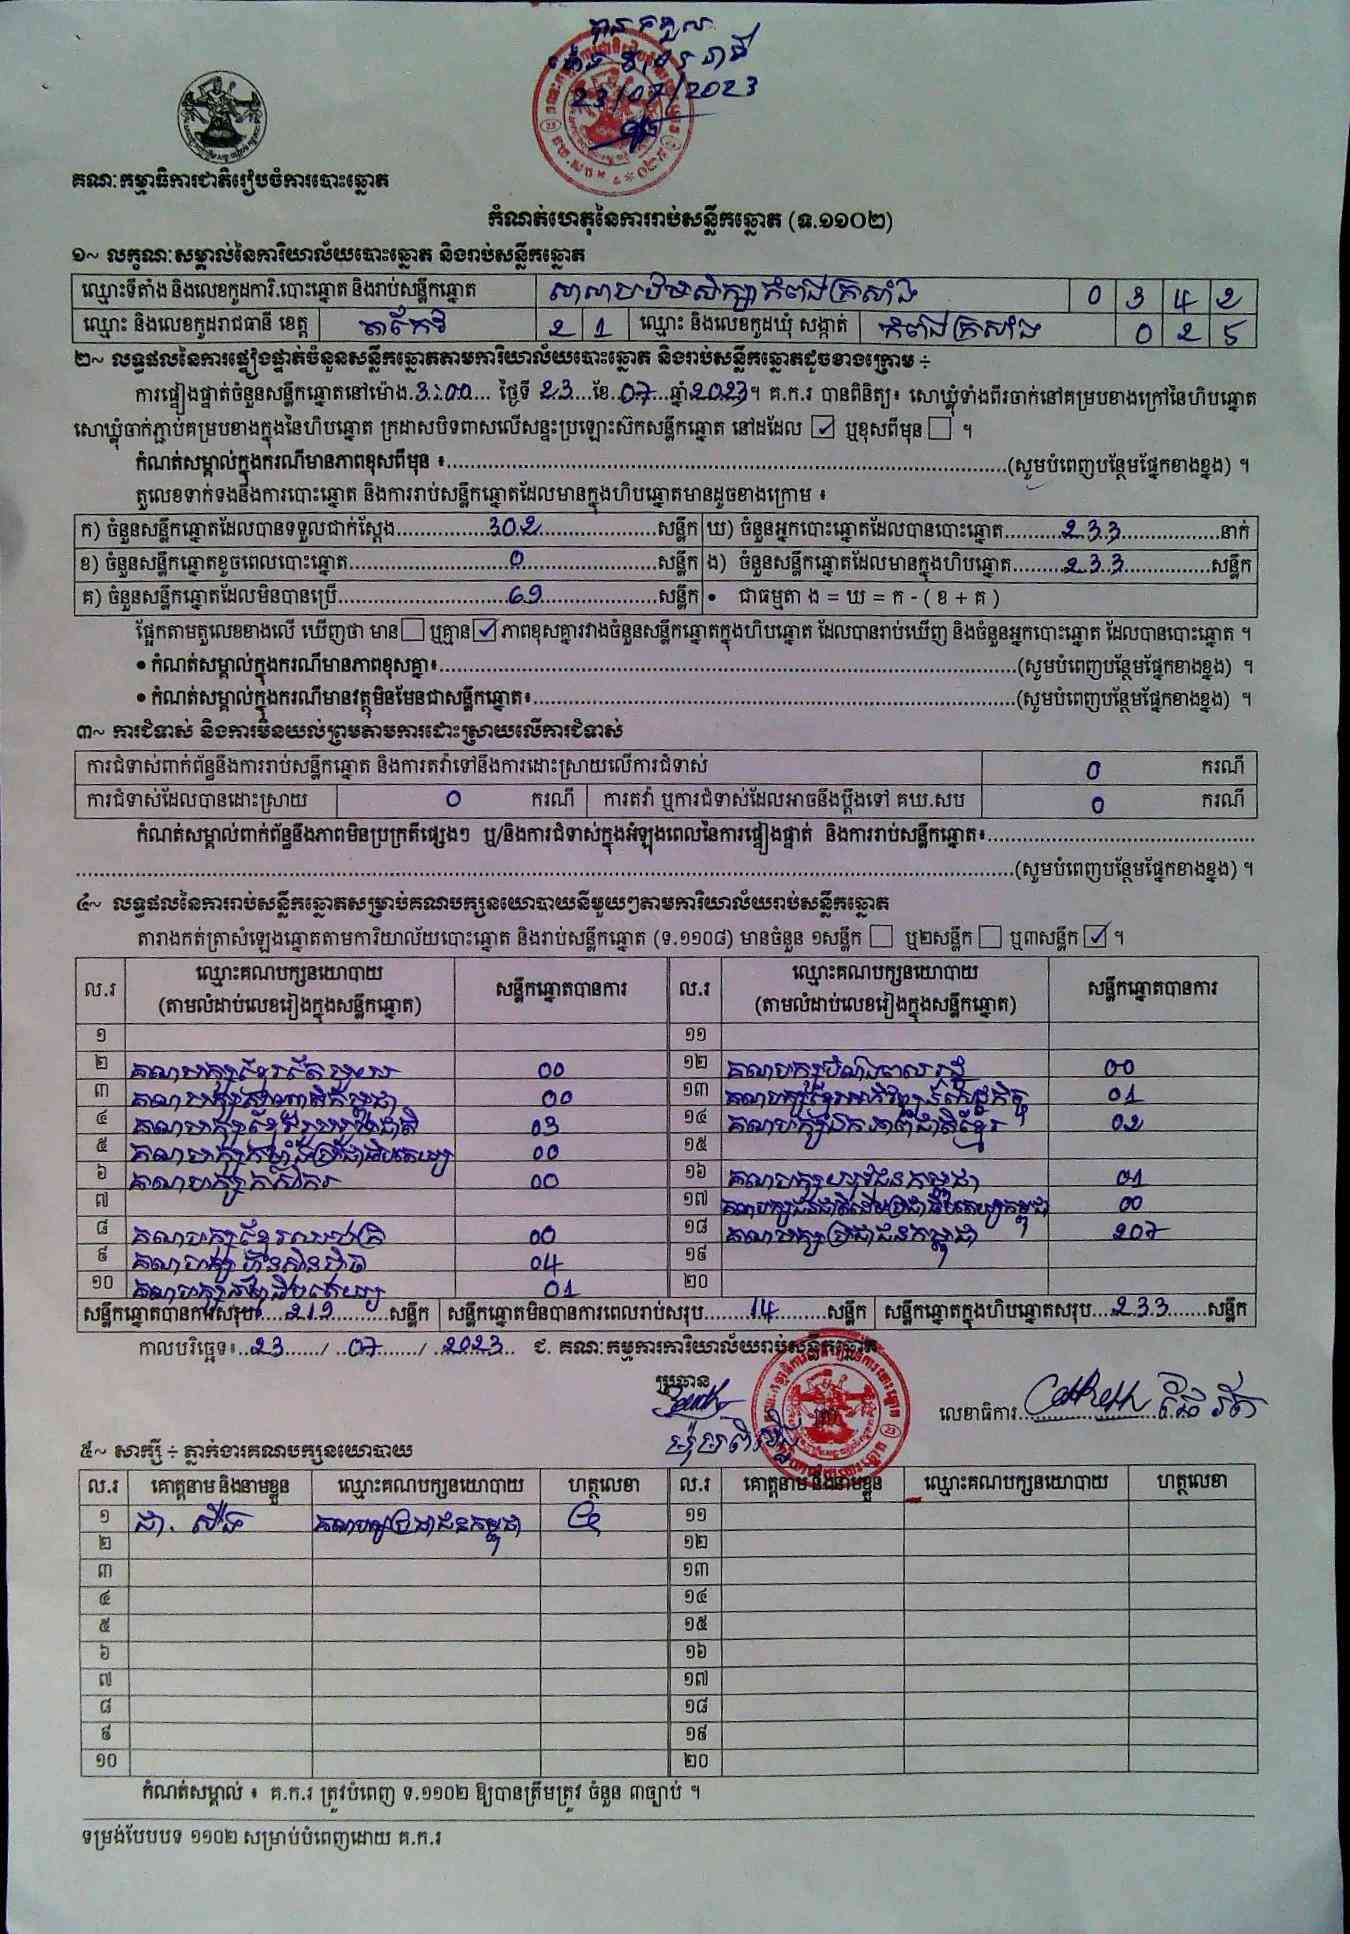 បានទទួល
23/07/2023
គណៈកម្មាធិការជាតិរៀបចំការបោះឆ្នោត
កំណត់ហេតុនៃការរាប់សន្លឹកឆ្នោត (ទ.១១០២)
១~ លក្ខណៈសម្គាល់នៃការិយាល័យបោះឆ្នោត និងរាប់សន្លឹកឆ្នោត
ឈ្មោះទីតាំង និងលេខកូដការិ.បោះឆ្នោត និងរាប់សន្លឹកឆ្នោត សាលាបឋមសិក្សាកំពង់ក្រសាំង 0 3 4 2
ឈ្មោះ និងលេខកូដរាជធានី ខេត្ត តាកែវ 2 1 ឈ្មោះ និងលេខកូដឃុំ សង្កាត់ កំពង់ក្រសាំង 0 2 5
២~ លទ្ធផលនៃការផ្ទៀងផ្ទាត់ចំនួនសន្លឹកឆ្នោតតាមការិយាល័យបោះឆ្នោត និងរាប់សន្លឹកឆ្នោតដូចខាងក្រោម ÷
ការផ្ទៀងផ្ទាត់ចំនួនសន្លឹកឆ្នោតនៅម៉ោង.3:00.... ថ្ងៃទី 23...ខែ.07...ឆ្នាំ2023។ គ.ក.រ បានពិនិត្យ៖ សោឃ្លុំទាំងពីរចាក់នៅគម្របខាងក្រៅនៃហិបឆ្នោត
សោឃ្លុំចាក់ភ្ជាប់គម្របខាងក្នុងនៃហិបឆ្នោត ក្រដាសបិទពាសលើសន្ទះប្រឡោះស៊កសន្លឹកឆ្នោត នៅដដែល ☑ ឬខុសពីមុន ☐ ។
កំណត់សម្គាល់ក្នុងករណីមានភាពខុសពីមុន ៖........(សូមបំពេញបន្ថែមផ្នែកខាងខ្នង) ។
តួលេខទាក់ទងនឹងការបោះឆ្នោត និងការរាប់សន្លឹកឆ្នោតដែលមានក្នុងហិបឆ្នោតមានដូចខាងក្រោម ៖
ក) ចំនួនសន្លឹកឆ្នោតដែលបានទទួលជាក់ស្តែង........302........សន្លឹក ឃ) ចំនួនអ្នកបោះឆ្នោតដែលបានបោះឆ្នោត........233........នាក់
ខ) ចំនួនសន្លឹកឆ្នោតខូចពេលបោះឆ្នោត........0........សន្លឹក ង) ចំនួនសន្លឹកឆ្នោតដែលមានក្នុងហិបឆ្នោត........233........សន្លឹក
គ) ចំនួនសន្លឹកឆ្នោតដែលមិនបានប្រើ........69........សន្លឹក • ជាធម្មតា ង = ឃ = ក - ( ខ + គ )
ផ្អែកតាមតួលេខខាងលើ ឃើញថា មាន ☐ ឬគ្មាន ☑ ភាពខុសគ្នារវាងចំនួនសន្លឹកឆ្នោតក្នុងហិបឆ្នោត ដែលបានរាប់ឃើញ និងចំនួនអ្នកបោះឆ្នោត ដែលបានបោះឆ្នោត ។
• កំណត់សម្គាល់ក្នុងករណីមានភាពខុសគ្នា៖........(សូមបំពេញបន្ថែមផ្នែកខាងខ្នង) ។
• កំណត់សម្គាល់ក្នុងករណីមានវត្ថុមិនមែនជាសន្លឹកឆ្នោត៖........(សូមបំពេញបន្ថែមផ្នែកខាងខ្នង) ។
៣~ ការជំទាស់ និងការមិនយល់ព្រមតាមការដោះស្រាយលើការជំទាស់
ការជំទាស់ពាក់ព័ន្ធនឹងការរាប់សន្លឹកឆ្នោត និងការតវ៉ាទៅនឹងការដោះស្រាយលើការជំទាស់ 0 ករណី
ការជំទាស់ដែលបានដោះស្រាយ 0 ករណី ការតវ៉ា ឬការជំទាស់ដែលអាចនឹងប្តឹងទៅ គឃ.សប 0 ករណី
កំណត់សម្គាល់ពាក់ព័ន្ធនឹងភាពមិនប្រក្រតីផ្សេងៗ ឬ/និងការជំទាស់ក្នុងអំឡុងពេលនៃការផ្ទៀងផ្ទាត់ និងការរាប់សន្លឹកឆ្នោត៖........
........(សូមបំពេញបន្ថែមផ្នែកខាងខ្នង) ។
៤~ លទ្ធផលនៃការរាប់សន្លឹកឆ្នោតសម្រាប់គណបក្សនយោបាយនីមួយៗតាមការិយាល័យរាប់សន្លឹកឆ្នោត
តារាងកត់ត្រាសំឡេងឆ្នោតតាមការិយាល័យបោះឆ្នោត និងរាប់សន្លឹកឆ្នោត (ទ.១១០៨) មានចំនួន ១សន្លឹក ☐ ឬ២សន្លឹក ☐ ឬ៣សន្លឹក ☑ ។
ល.រ ឈ្មោះគណបក្សនយោបាយ (តាមលំដាប់លេខរៀងក្នុងសន្លឹកឆ្នោត) សន្លឹកឆ្នោតបានការ ល.រ ឈ្មោះគណបក្សនយោបាយ (តាមលំដាប់លេខរៀងក្នុងសន្លឹកឆ្នោត) សន្លឹកឆ្នោតបានការ
១ ១១
២ គណបក្សខ្មែរតែមួយ 00 ១២ គណបក្សបំណងពលរដ្ឋ 00
៣ 00 ១៣ គណបក្សខ្មែរអភិវឌ្ឍន៍សេដ្ឋកិច្ច 01
៤ 03 ១៤ គណបក្សឯកភាពជាតិខ្មែរ 02
៥ គណបក្សកម្លាំងប្រជាធិបតេយ្យ 00 ១៥
៦ គណបក្សកសិករ 00 ១៦ គណបក្សយុវជនកម្ពុជា 01
៧ ១៧ គណបក្សជនជាតិដើមប្រជាធិបតេយ្យកម្ពុជា 00
៨ 00 ១៨ គណបក្សប្រជាជនកម្ពុជា 207
៩ គណបក្សហ្វ៊ុនស៊ិនប៉ិច 04 ១៩
១០ 01 ២០
សន្លឹកឆ្នោតបានការសរុប....219....សន្លឹក សន្លឹកឆ្នោតមិនបានការពេលរាប់សរុប....14....សន្លឹក សន្លឹកឆ្នោតក្នុងហិបឆ្នោតសរុប....233....សន្លឹក
កាលបរិច្ឆេទ៖..23....../..07....../..2023... ជ. គណៈកម្មការការិយាល័យរាប់សន្លឹកឆ្នោត
ប្រធាន
លេខាធិការ........
៥~ សាក្សី ÷ ភ្នាក់ងារគណបក្សនយោបាយ
ល.រ គោត្តនាម និងនាមខ្លួន ឈ្មោះគណបក្សនយោបាយ ហត្ថលេខា ល.រ គោត្តនាម និងនាមខ្លួន ឈ្មោះគណបក្សនយោបាយ ហត្ថលេខា
១ គណបក្សប្រជាជនកម្ពុជា ១១
២ ១២
៣ ១៣
៤ ១៤
៥ ១៥
៦ ១៦
៧ ១៧
៨ ១៨
៩ ១៩
១០ ២០
កំណត់សម្គាល់ ៖ គ.ក.រ ត្រូវបំពេញ ទ.១១០២ ឱ្យបានត្រឹមត្រូវ ចំនួន ៣ច្បាប់ ។
ទម្រង់បែបបទ ១១០២ សម្រាប់បំពេញដោយ គ.ក.រ